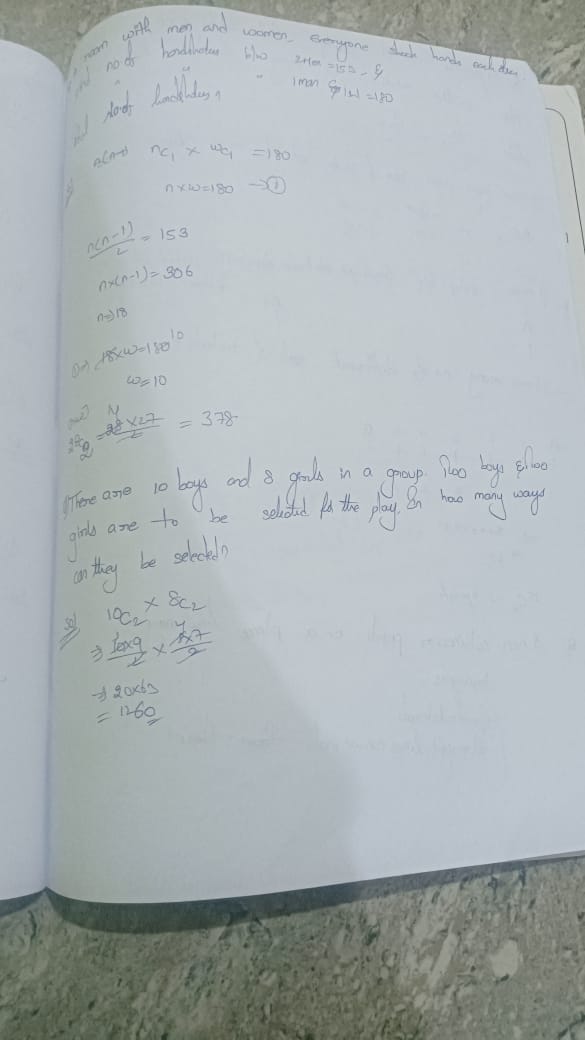 room with men and women. Everyone shook hands each other
no of handshakes b/w 2 Men = 153 &
" " 1 man & 1 W = 180
nd no of handshakes?
nC1 × wC1 = 180
n×w=180 → ①
n(n-1)/2 = 153
n×(n-1)=306
n⇒18
18×w=180 10
w=10
28C2 = 28×27/2 = 378
There are 10 boys and 8 girls in a group. Two boys & Two
girls are to be selected for the play. In how many ways
can they be selected?
Sol 10C2 × 8C2
⇒ 10×9/2 × 8×7/2
⇒ 20×63
= 1260